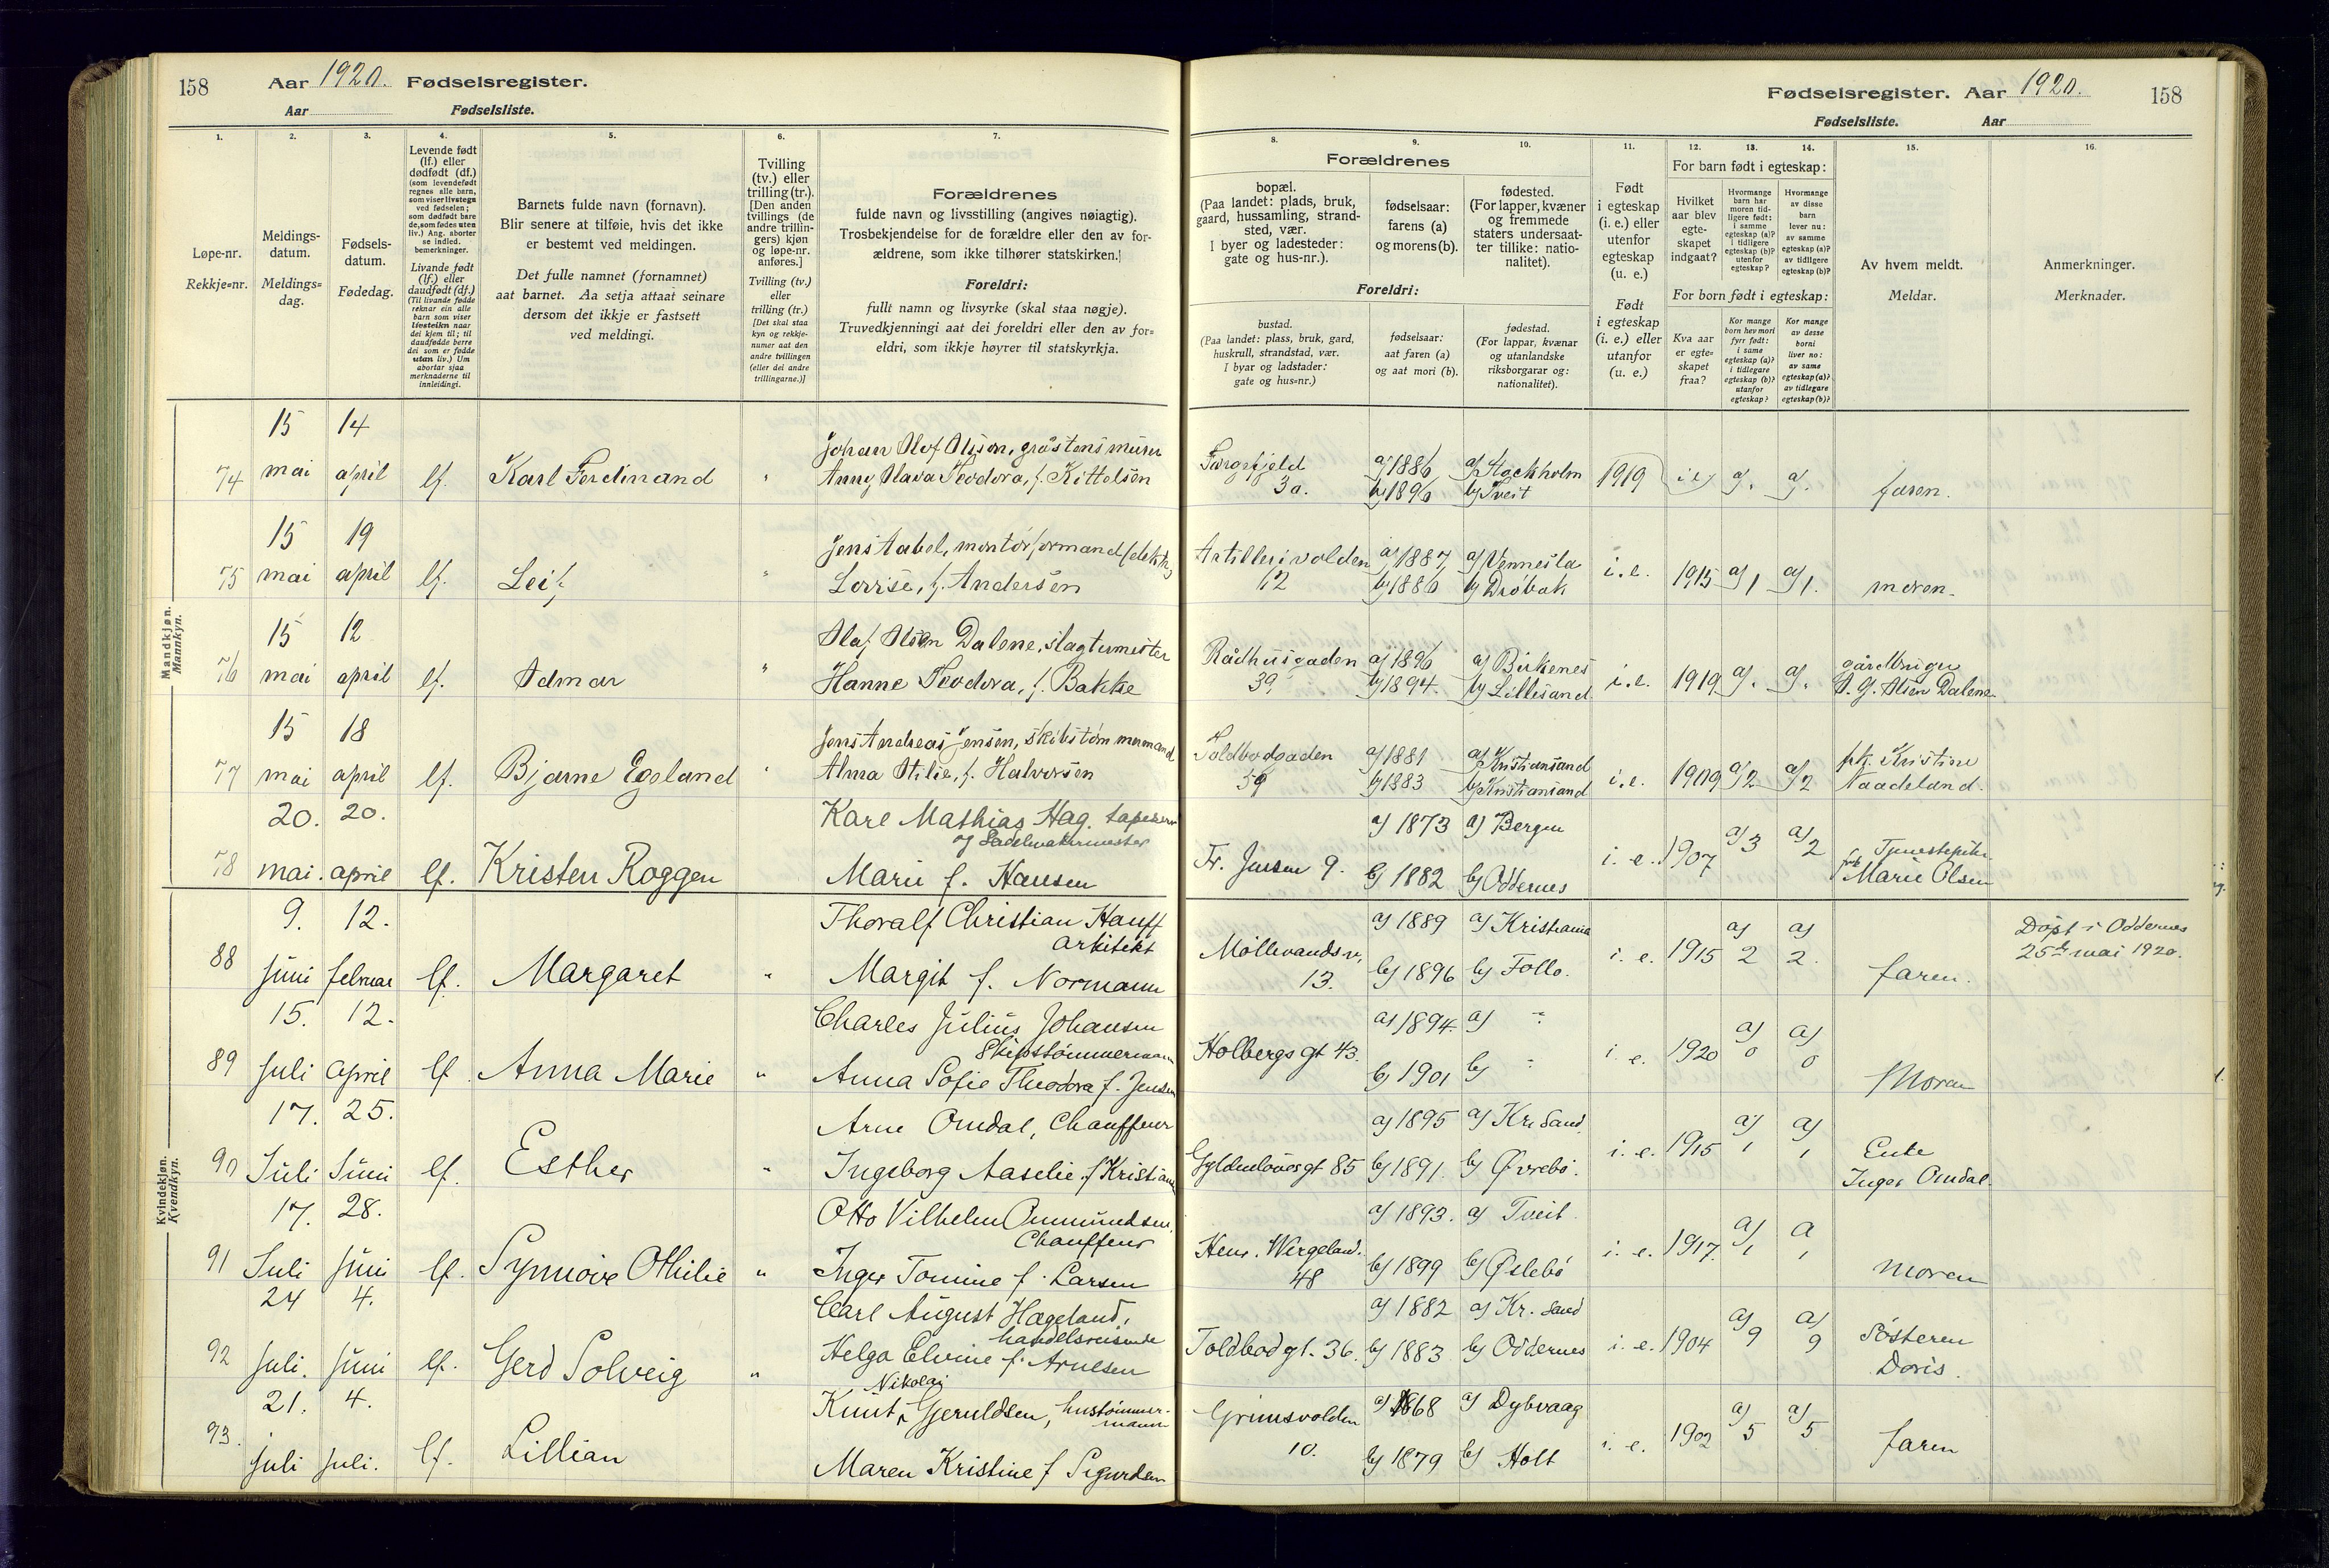 158 Aar 1920. Fødselsregister.
Aar Fødselsliste.
Fødselsregister. Aar 1920. 158
Fødselsliste. Aar
1. 2. 3. 4. 5. 6. 7.
Løpe-nr.
Rekkje=nr.
Meldings-
datum.
Meldings=
dag.
Fødsels-
datum.
Fødedag.
Levende født
(lf.) eller
dødfødt (df.)
(som levendefødt
regnes alle barn,
som viser livstegn
ved fødselen;
som dødfødt bare
de, som fødes uten
liv.) Ang. aborter
se indled.
bemerkninger.
Livande født
(lf.) eller
daudfødt (df.)
(Til livande fødde
reknar ein alle
barn som viser
livsteikn naar
dei kjem til; til
daudfødde berre
dei som er fødde
utan liv.) Um
abortar sjaa
merknaderne til
innleidingi.
Barnets fulde navn (fornavn).
Blir senere at tilføie, hvis det ikke
er bestemt ved meldingen.
Det fulle namnet (fornamnet)
aat barnet. Aa setja attaat seinare
dersom det ikkje er fastsett
ved meldingi.
Tvilling
(tv.) eller
trilling (tr.).
[Den anden
tvillings (de
andre trillin-
gers) kjøn
og løpe-nr.
anføres.]
Tvilling (tv.)
eller
trilling (tr.)
[Det skal staa
kyn og rekkje-
numer aat den
andre tvillingen
(eller dei andre
trillingarne.)]
Forældrenes
fulde navn og livsstilling (angives nøiagtig).
Trosbekjendelse for de forældre eller den av for-
ældrene, som ikke tilhører statskirken.]
Foreldri:
fullt namn og livsyrke (skal staa nøgje).
Truvedkjenningi aat dei foreldri eller den av for=
eldri, som ikkje høyrer til statskyrkja.
8. 9. 10. 11. 12. 13. 14. 15. 16.
Forældrenes
bopæl.
(Paa landet: plads, bruk,
gaard, hussamling, strand-
sted, vær.
I byer og ladesteder:
gate og hus-nr.).
fødselsaar:
farens (a)
og morens (b).
fødested.
(For lapper, kvæner
og fremmede
staters undersaat-
ter tillike: natio-
nalitet).
Foreldri:
bustad.
(Paa landet: plass, bruk, gard,
huskrull, strandstad, vær.
I byar og ladstader:
gate og hus=nr.)
fødselsaar:
aat faren (a)
og aat mori (b).
fødestad.
(For lappar, kvænar
og utanlandske
riksborgarar og:
nationalitet).
Født
i egteskap
(i. e.) eller
utenfor
egteskap
(u. e.)
Født
i egteskap
(i. e.) eller
utanfor
(u. e.)
For barn født i egteskap:
Hvilket
aar blev
egte-
skapet
indgaat?
Hvormange
barn har
moren tid-
ligere født:
i samme
egteskap (a)?
i tidligere
egteskap (b)?
utenfor
egteskap?
Hvormange
av disse
barn
lever nu:
av samme
egteskap (a)?
av tidligere
egteskap (b)?
For born født i egteskap:
Kva aar
er egte=
skapet
fraa?
Kor mange
born hev mori
fyrr født:
i same
egteskap (a)?
i tidlegare
egteskap (b)?
utanfor
egteskap?
Kor mange
av desse
borni
liver no:
av same
egteskap (a)?
av tidlegare
egteskap (b)?
Av hvem meldt.
Meldar.
Anmerkninger.
Merknader.
Mandkjøn.
Mannkyn.
15 14
Johan Olof Olsson, gråstensmurer
74 mai april lf. Karl Ferdinand " Anny Olava Teodora, f. Kittelsen
3a. a) 1886 a) Stockholm
b) 1896 b) Tveit 1919 i.e. a). a). faren.
15 19
Jens Aabel, montørformand (elektr.)
75 mai april lf. Leif " Lovise, f. Andersen
Artillerivolden a) 1887 a) Vennesla
12 b) 1886 b) Drøbak i.e. 1915 a) 1 a) 1. moren.
15 12
Olaf Olsen Dalene, slagtermester
76 mai april lf. Odmar " Hanne Teodora, f. Bakke
Rådhusgaden a) 1896 a) Birkenes
39 b) 1894. b) Lillesand i.e. 1919 a). a). gårdbruger
O. G. Olsen Dalene
15 18
Jens Andreas Jensen, skibstømmermand
77 mai april lf. Bjarne Egeland " Alma Otilie, f. Halvorsen
Toldbodgaden a) 1881 a) Kristiansand
59 b) 1883 b) Kristiansand i.e. 1909 a) 2 a) 2 frk. Kristine
Naadeland.
20. 20.
Karl Mathias Hag. tapetserer
og Sadelmakermester
78 mai. april lf. Kristen Roggen Marie f. Hansen
Fr. Jensen 9. a) 1873 a) Bergen
b) 1882 b) Oddernes i. e. 1907 a) 3 a) 2 Tjenestepike
Marie Olsen
Kvindekjøn.
Kvendkyn.
9. 12.
Thoralf Christian Hauff
arkitekt
88 Juni februar lf. Margaret " Margit f. Normann
Møllevandsv. 13. a) 1889 a) Kristiania
b) 1896 b) Follo. i. e. 1915 a) 2 a) 2. faren.
Døpt i Oddernes
25de mai 1920.
15. 12.
Charles Julius Johansen
Skipstømmermann
89 Juli april lf. Anna Marie " Anna Sofie Theodora f. Jensen
Holbergs gt 43. a) 1894. a) -
b) 1901 b) - i. e. 1920 a) 0 a) 0 Moren
17. 25.
Arne Omdal, Chauffeur
90 Juli Juni lf. Esther " Ingeborg Aaselie f. Kristiansen
Gyldenløves gt 85 a) 1895 a) Kr. Sand.
b) 1891. b) Øvrebø. i. e. 1915 a) 1 a) 1 Enke
Inger Omdal.
17. 28.
Otto Vilhelm Ommundsen,
Chauffeur
91 Juli Juni lf. Synnøve Othilie " Inger Tomine f. Larsen
Henr. Wergeland. 48 a) 1893. a) Tveit.
b) 1899 b) Øslebø i. e. 1917. a) 1 a 1 moren
24 4.
Carl August Hægeland,
handelsreisende
92 Juli. Juni lf. Gerd Solveig " Helga Elvine f. Arnesen
Toldbodgt. 36. a) 1882 a) Kr. Sand
b) 1883 b) Oddernes i. e. 1904 a) 9 a) 9 Søsteren
Doris.
21. 4.
Nikolai
Knut Gjeruldsen, hustømmer-
mann
93. juli juli. lf. Lillian
Maren Kristine f Sigurdsen
Grimsvolden 10. a) 1868 a) Dybvaag
b) 1879 b) Holt i. e. 1902 a) 5 a) 5 faren